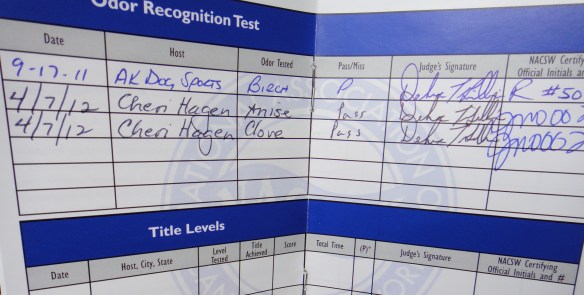 Odor Recognition Test
Date Host Odor Tested Pass/Miss Judge's Signature NACSW Certify Official Initials a
9-17-11 AK Dog Sports Birch P R #50
4/7/12 Cheri Hagen Anise Pass
4/7/12 Cheri Hagen Clove Pass
Title Levels
Date Host, City, State Level Tested Title Achieved Score Total Time (P)* Judge's Signature NACSW Certifying Official Initials and #